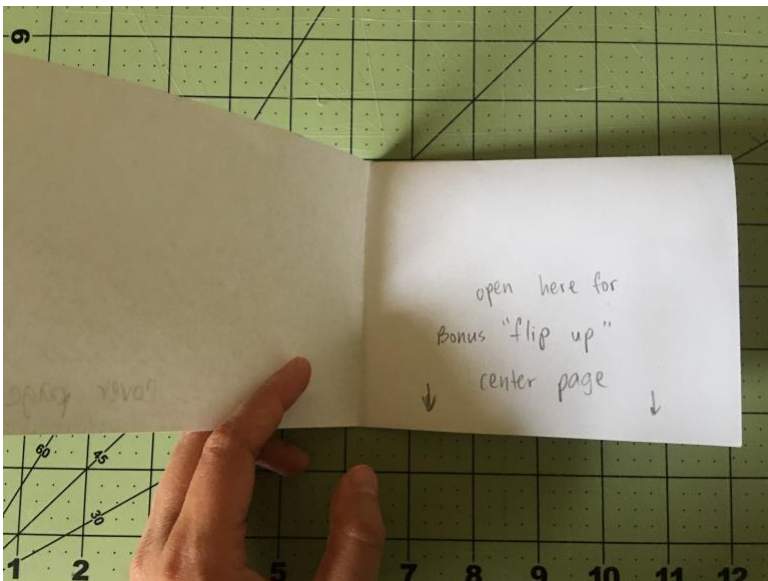 6
open here for
Bonus "flip up"
center page
cover page
60
45
30
1 2 5 7 8 9 10 11 12